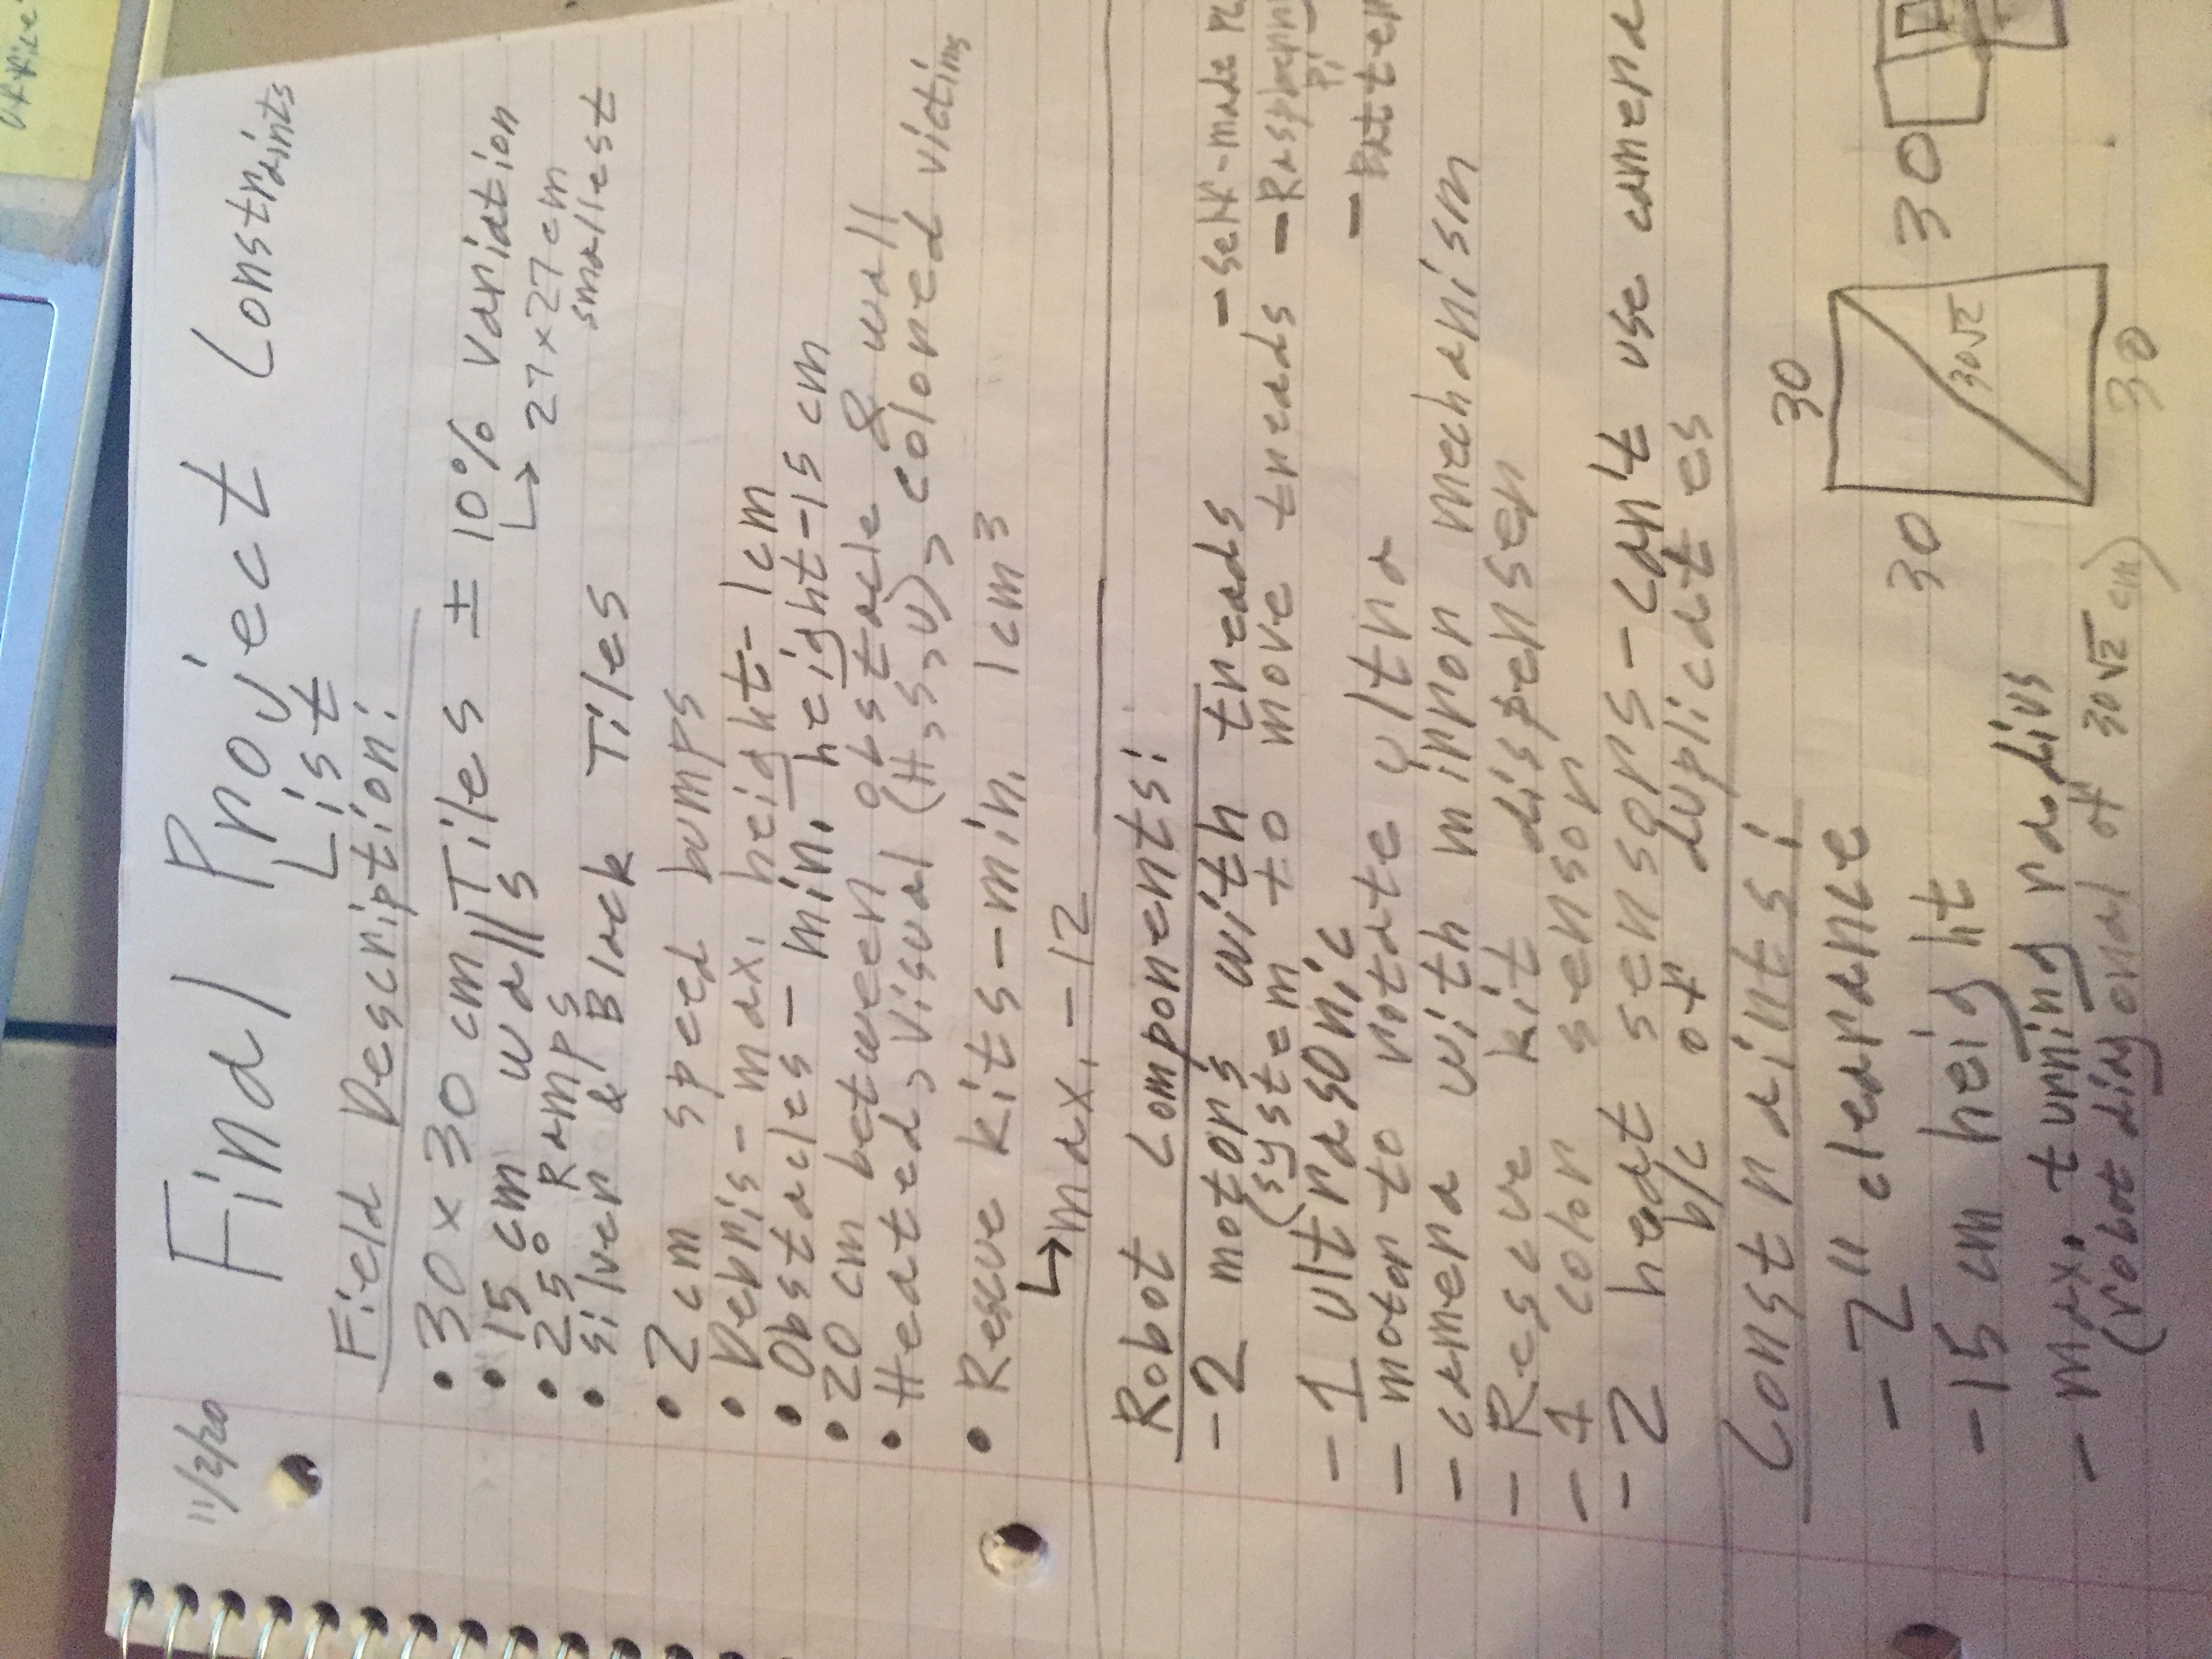 office
11/2/20
Final Project Constraints
List
Field Description:
• 30 x 30 cm Tiles ± 10% variation
↳ 27x27cm
smallest
• 15 cm walls
• 25° Ramps
• Silver & Black Tiles
• 2cm speed bumps
• Debris - max. height - 1cm
• Obstacles - min. height - 15 cm
• 20 cm between obstacle & wall
• Heated, Visual (H, S, U), colored victims
• Rescue kits - min. 1cm³
↳ max. - 12
Robot Components:
- 2 motors with treads
(system to move treads
- 1 ultrasonic
- motor to rotate ultra
- camera with mirror mechanism
- Rescue kit dispenser
- 1 color sensor
- 2 heat sensors - can't use camera
b/c of duplicates
- self-made PC
- Raspberry
Pi
- Batter
Constraints:
- 2" clearance
- 15 cm height
- max. turning radius
(robot diagonal of 30√2 cm)
30
30
30√2
30
30